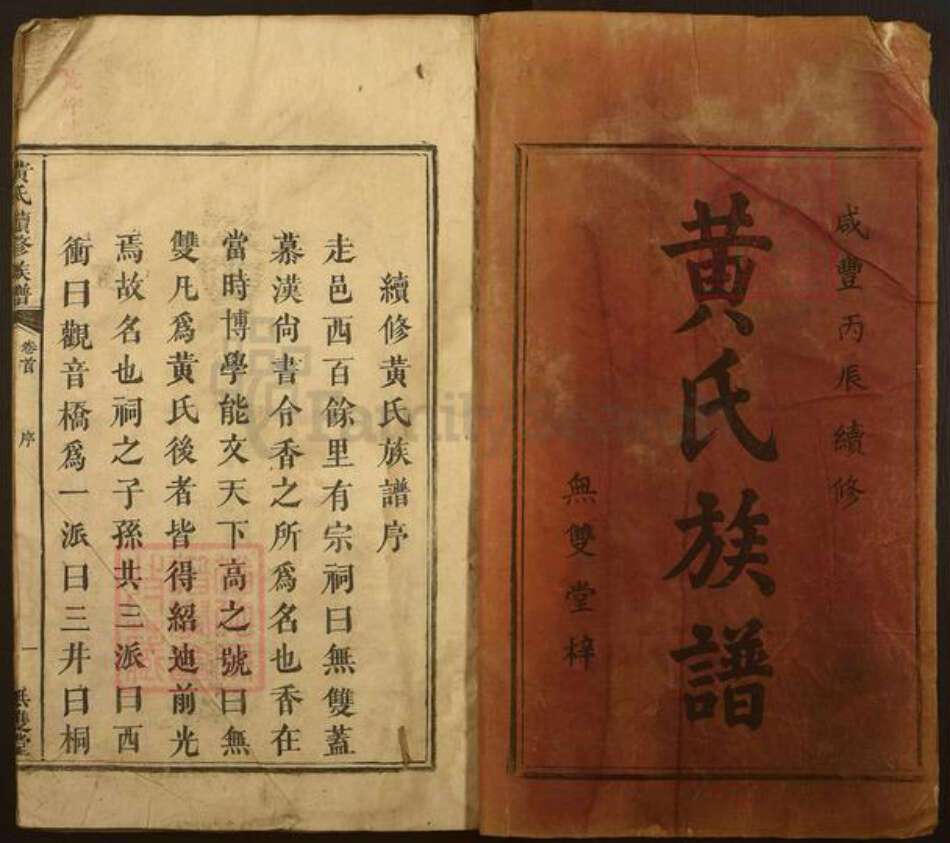 咸豐丙辰續修
黄氏族譜
無雙堂梓
續修黄氏族譜序
走邑西百餘里有宗祠曰無雙蓋
慕漢尙書令香之所爲名也香在
當時博學能文天下高之號曰無
雙凡爲黄氏後者皆得紹迪前光
焉故名也祠之子孫共三派曰西
衝曰觀音橋爲一派曰三井曰桐
黄氏續修族譜
卷首
序
一
無雙堂